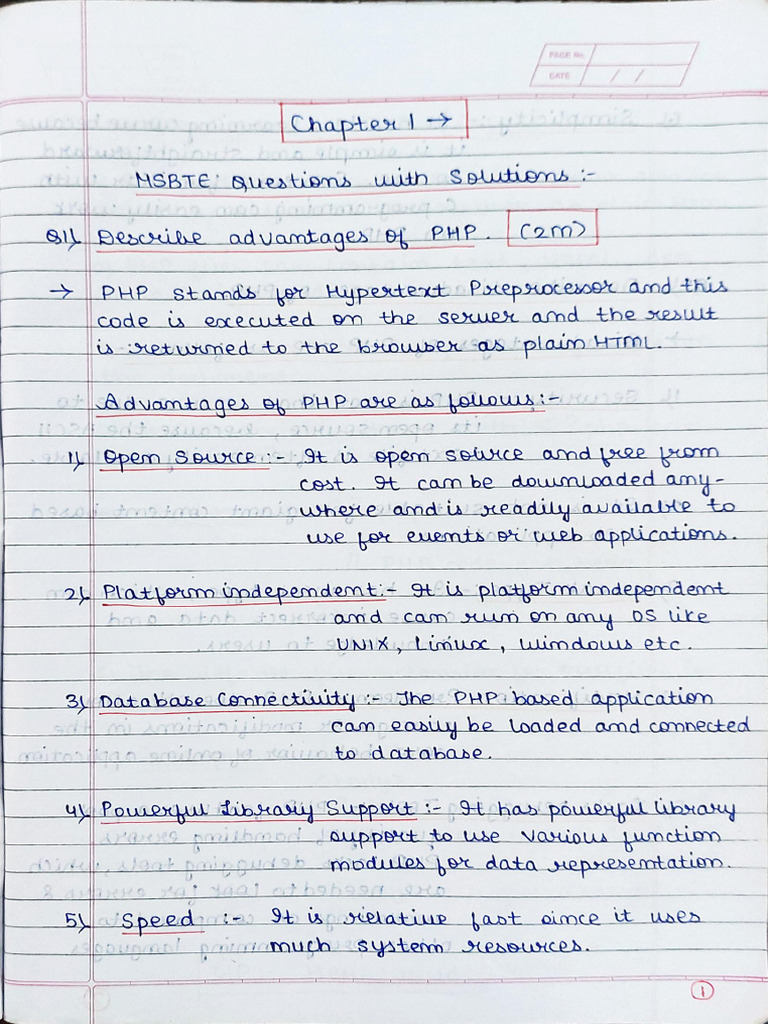 PAGE No.
DATE / /
Chapter 1 →
MSBTE Questions with Solutions :-
Q1) Describe advantages of PHP. (2m)
→ PHP stands for Hypertext Preprocessor and this
code is executed on the server and the result
is returned to the browser as plain HTML.
Advantages of PHP are as follows :-
1) Open Source :- It is open source and free from
cost. It can be downloaded any-
where and is readily available to
use for events or web applications.
2) Platform independent :- It is platform independent
and can run on any OS like
UNIX, Linux, Windows etc.
3) Database Connectivity :- The PHP based application
can easily be loaded and connected
to database.
4) Powerful Library Support :- It has powerful library
support to use various function
modules for data representation.
5) Speed :- It is relative fast since it uses
much system resources.
1